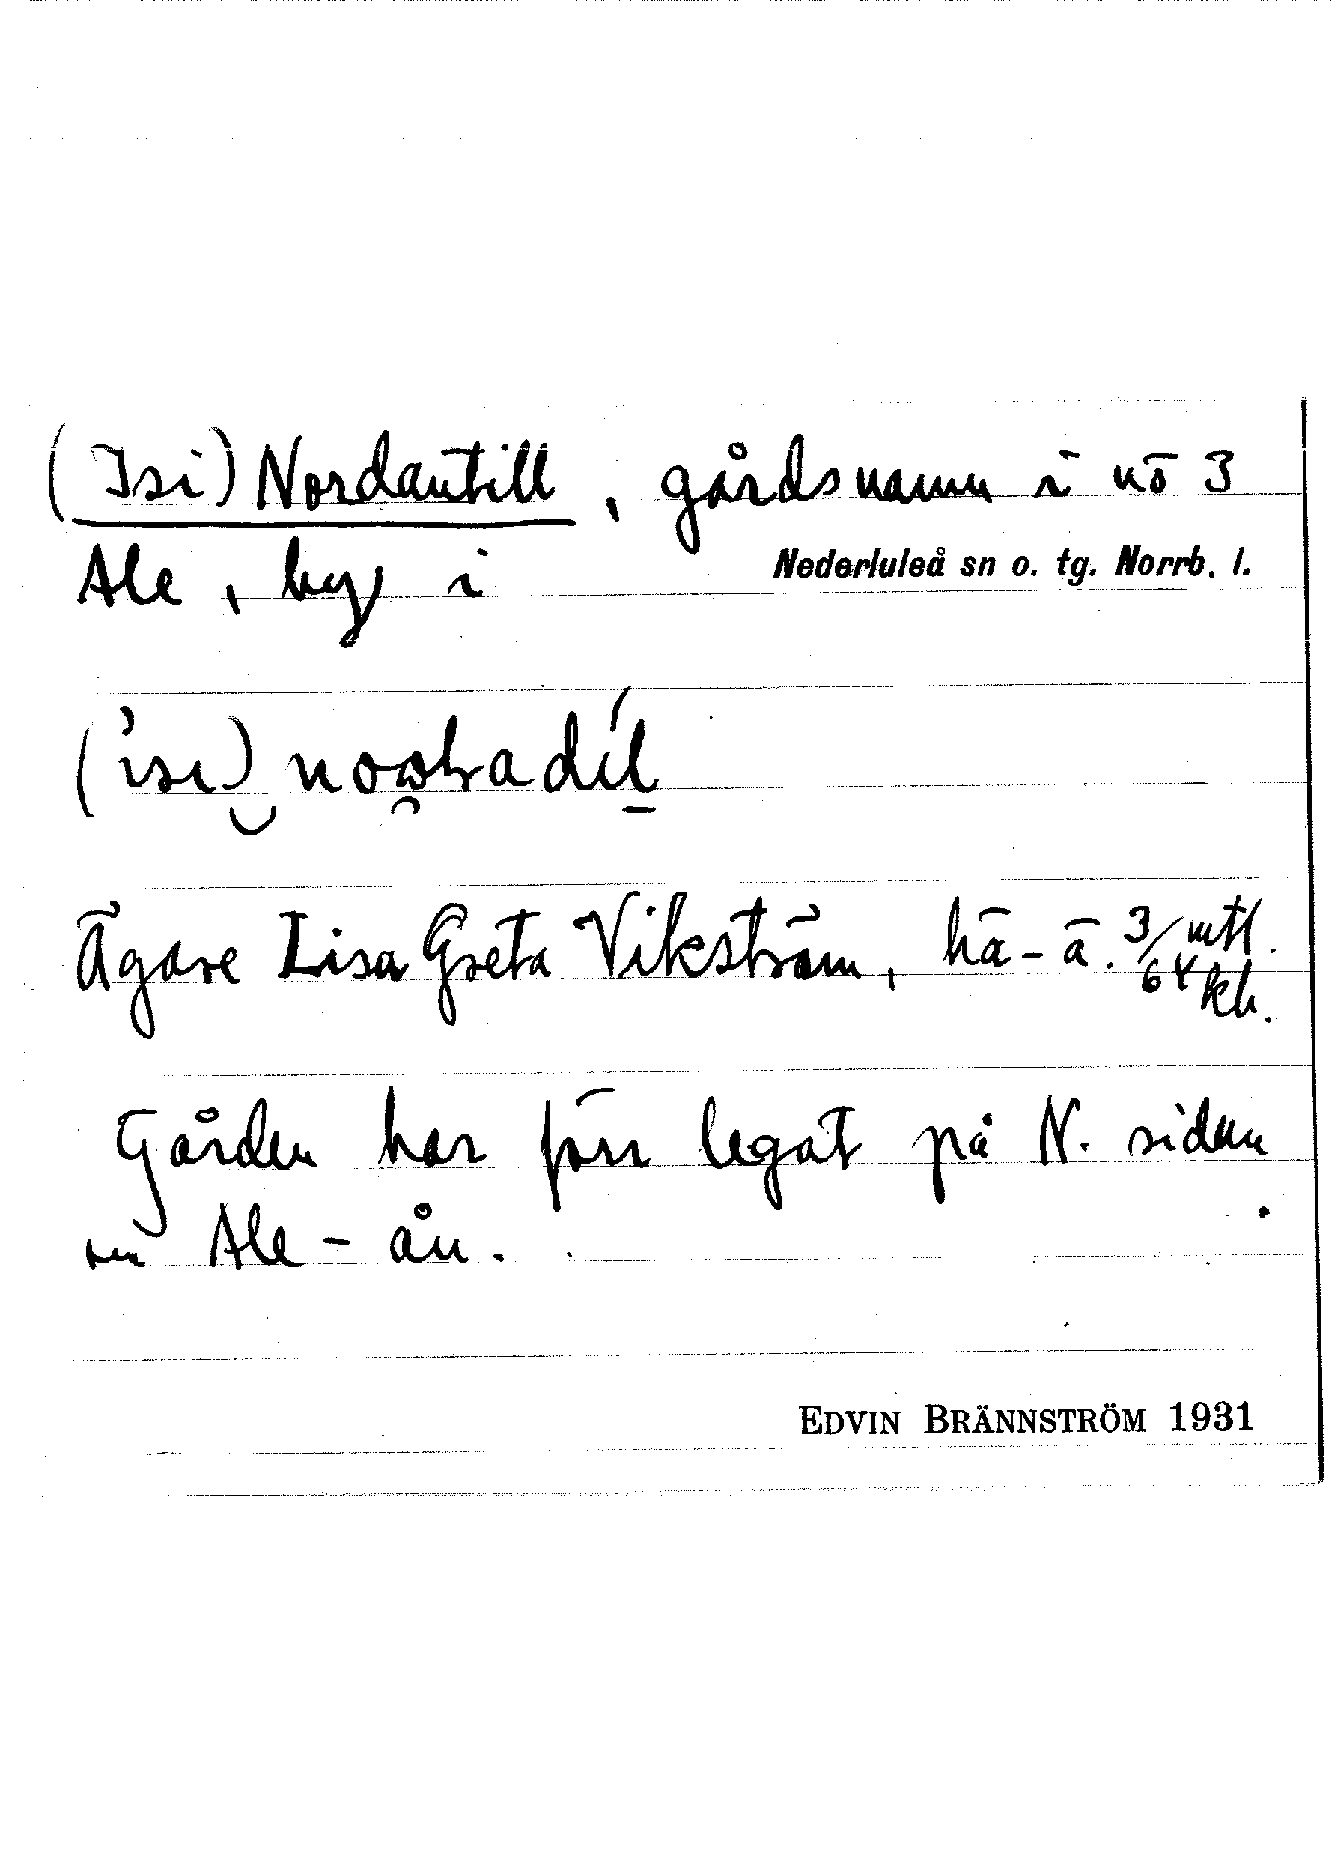 (Isi) Nordantill, gårdsnamn i nō 3
Ale, by i Nederluleå sn o. tg. Norrb. l.
Ägare Lisa Greta Vikström, hā-ā. 3/64 mtl. kh.
Gården har förr legat på N. sidan
om Ale-ån.
EDVIN BRÄNNSTRÖM 1931